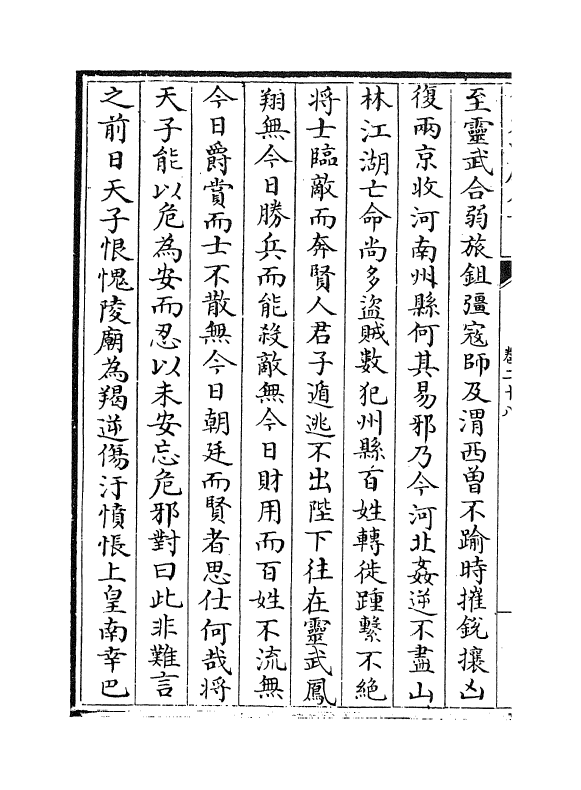 至靈武合弱旅鉏彊寇師及渭西曾不踰時摧銳攘凶
復兩京收河南州縣何其易邪乃今河北姦逆不盡山
林江湖亡命尚多盜賊數犯州縣百姓轉徙踵繫不絕
將士臨敵而奔賢人君子遁逃不出陛下往在靈武鳳
翔無今日勝兵而能殺敵無今日財用而百姓不流無
今日爵賞而士不散無今日朝廷而賢者思仕何哉將
天子能以危為安而忍以未安忘危邪對曰此非難言
之前日天子恨愧陵廟為羯逆傷汙憤悵上皇南幸巴
卷二十八